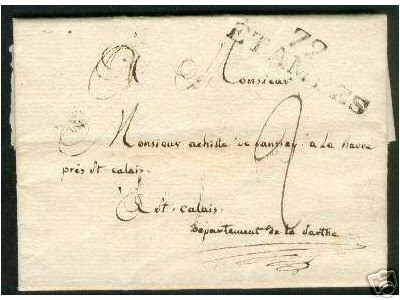 72
ÉTAMPES
A Monsieur
Monsieur achille de Launay a La havre
près St calais.
A St. calais.
Département de la Sarthe
2